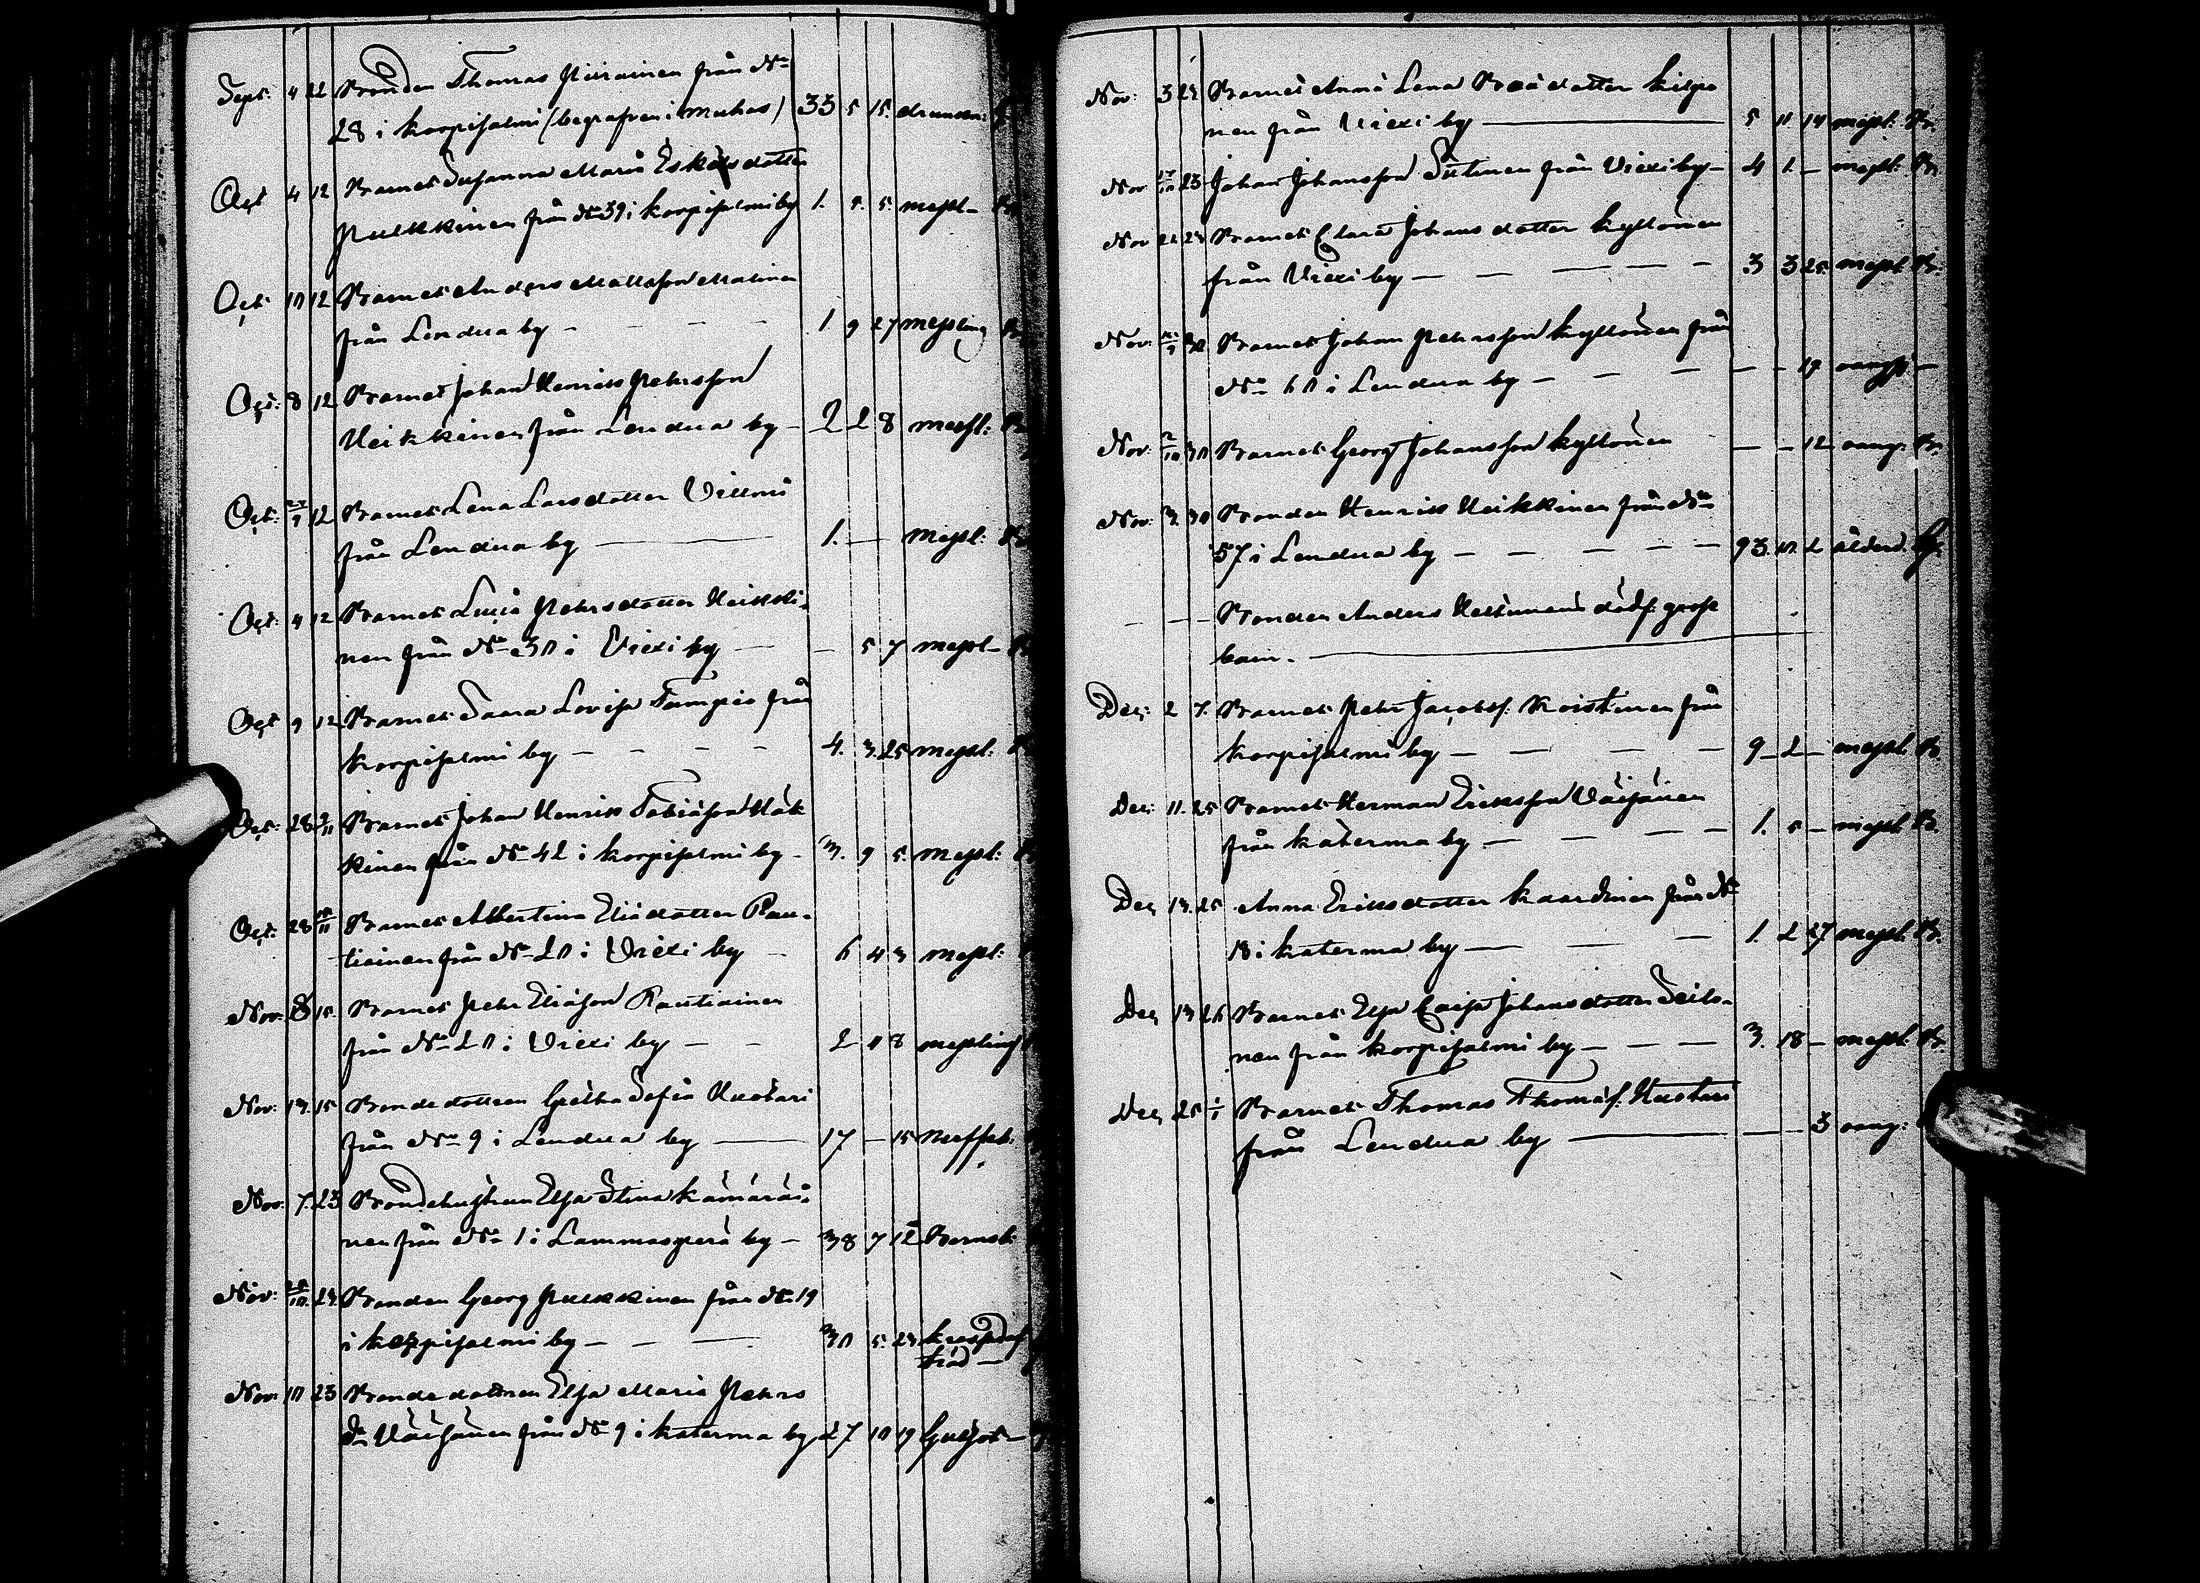 Sept: 4 22 Bonden Thomas Piirainen från No
28 i Korpisalmi (begrafven i Muhos) 33 5 15. drunkn:
Oct 4 12 Barnet Susanna Maria Eskilsdotter
Pulkkinen från No 39 i Korpisalmi by 1. 5. 5. messl— Br
Oct 10 12 Barnet Anders Mattsson Malinen
från Lendua by — 1 9 27 messling Br
Oct: 8 12 Barnet Johan Henrik Pehrsson
Heikkinen från Lendua by — 2 2 8 messl: Br
Oct: 27/9 12 Barnet Lena Larsdotter
från Lendua by — 1. — messl: Br
Oct: 4 12 Barnet Lucia Pehrsdotter Heikki-
nen från No 30 i Viexi by — — 5 7 messl— B
Oct 9 12 Barnet Saara Lovisa Tampio från
Korpisalmi by — — — — 4. 3. 25 messl: B
Oct: 28 9/11 Barnet Johan Henrik Tobiasson Häk
kinen från No 42 i Korpisalmi by — 3. 9 5. messl: B
Oct: 28 10/11 Barnet Albertina Eliædotter Rau-
tiainen från No 20 i Viexi by — 6 4 3 messl:
Nov: 8 15. Barnet Pehr Eliasson Rautiainen
från No 20 i Viexi by — — 2 11 8 messling
Nov: 13. 15 Bondedottren Gretha Sofia Huotari
från No 9 i Lendua by — 17 — 15
Nov: 7. 23 Bondehustrun Elsa Stina Kämäräi-
nen från No 1 i Lammasperä by — 38 7 12 Barnsb:
Nov: 28/10. 23. Bonden Georg Pulkkinen från No 19
i Korpisalmi by — — — 30 5. 23
Nov: 10 23 Bondedottren Elsa Maria Pehrs
dr Väisänen från No 9 i Katerma by 27 10 19 Gulsot—
Nov: 3 23 Barnet Anna Lena dotter Kilpe
nen från Viexi by — 5 11. 14 messl: Br.
Nov 17/10 23 Johan Johansson Sutinen från Viexi by — 4 1. — messl: Br
Nov 21 23 Barnet Clara Johansdotter Kyllönen
från Viexi by — — — — — 3 3 25 messl: Br.
Nov: 30 Barnet Johan Pehrsson Kyllönen från
No 60 i Lendua by — — — — — 19 oang —
Nov: 2/10 30 Barnet Georg Johansson Kyllönen — — 12 oang: Br.
Nov: 3. 30 Bonden Henrik Heikkinen från No
57 i Lendua by — — — — — 93. 10. 2 ålderd.
— — — Bonden Anders Keltunens dödf: gosse
barn. —
Dec: 2 7. Barnet Pehr Jacobs: Koistinen från
Korpisalmi by — — — — 9 — 2 — messl. B.
Dec: 11. 25 Barnet Herman Ericksson Väisänen
från Katerma by — — — — 1. 5 — messl. B.
Dec 13. 25 Anna Ericksdotter Kaartinen från No
18 i Katerma by — — — 1. 2 27 messl. B.
Dec 13 26 Barnet Elsa Caisa Johansdotter Seilo-
nen från Korpisalmi by — — — 3. 18 — messl. B.
Dec 25 1/1 Barnet Thomas Thomass: Huotari
från Lendua by — — — 3 oang: